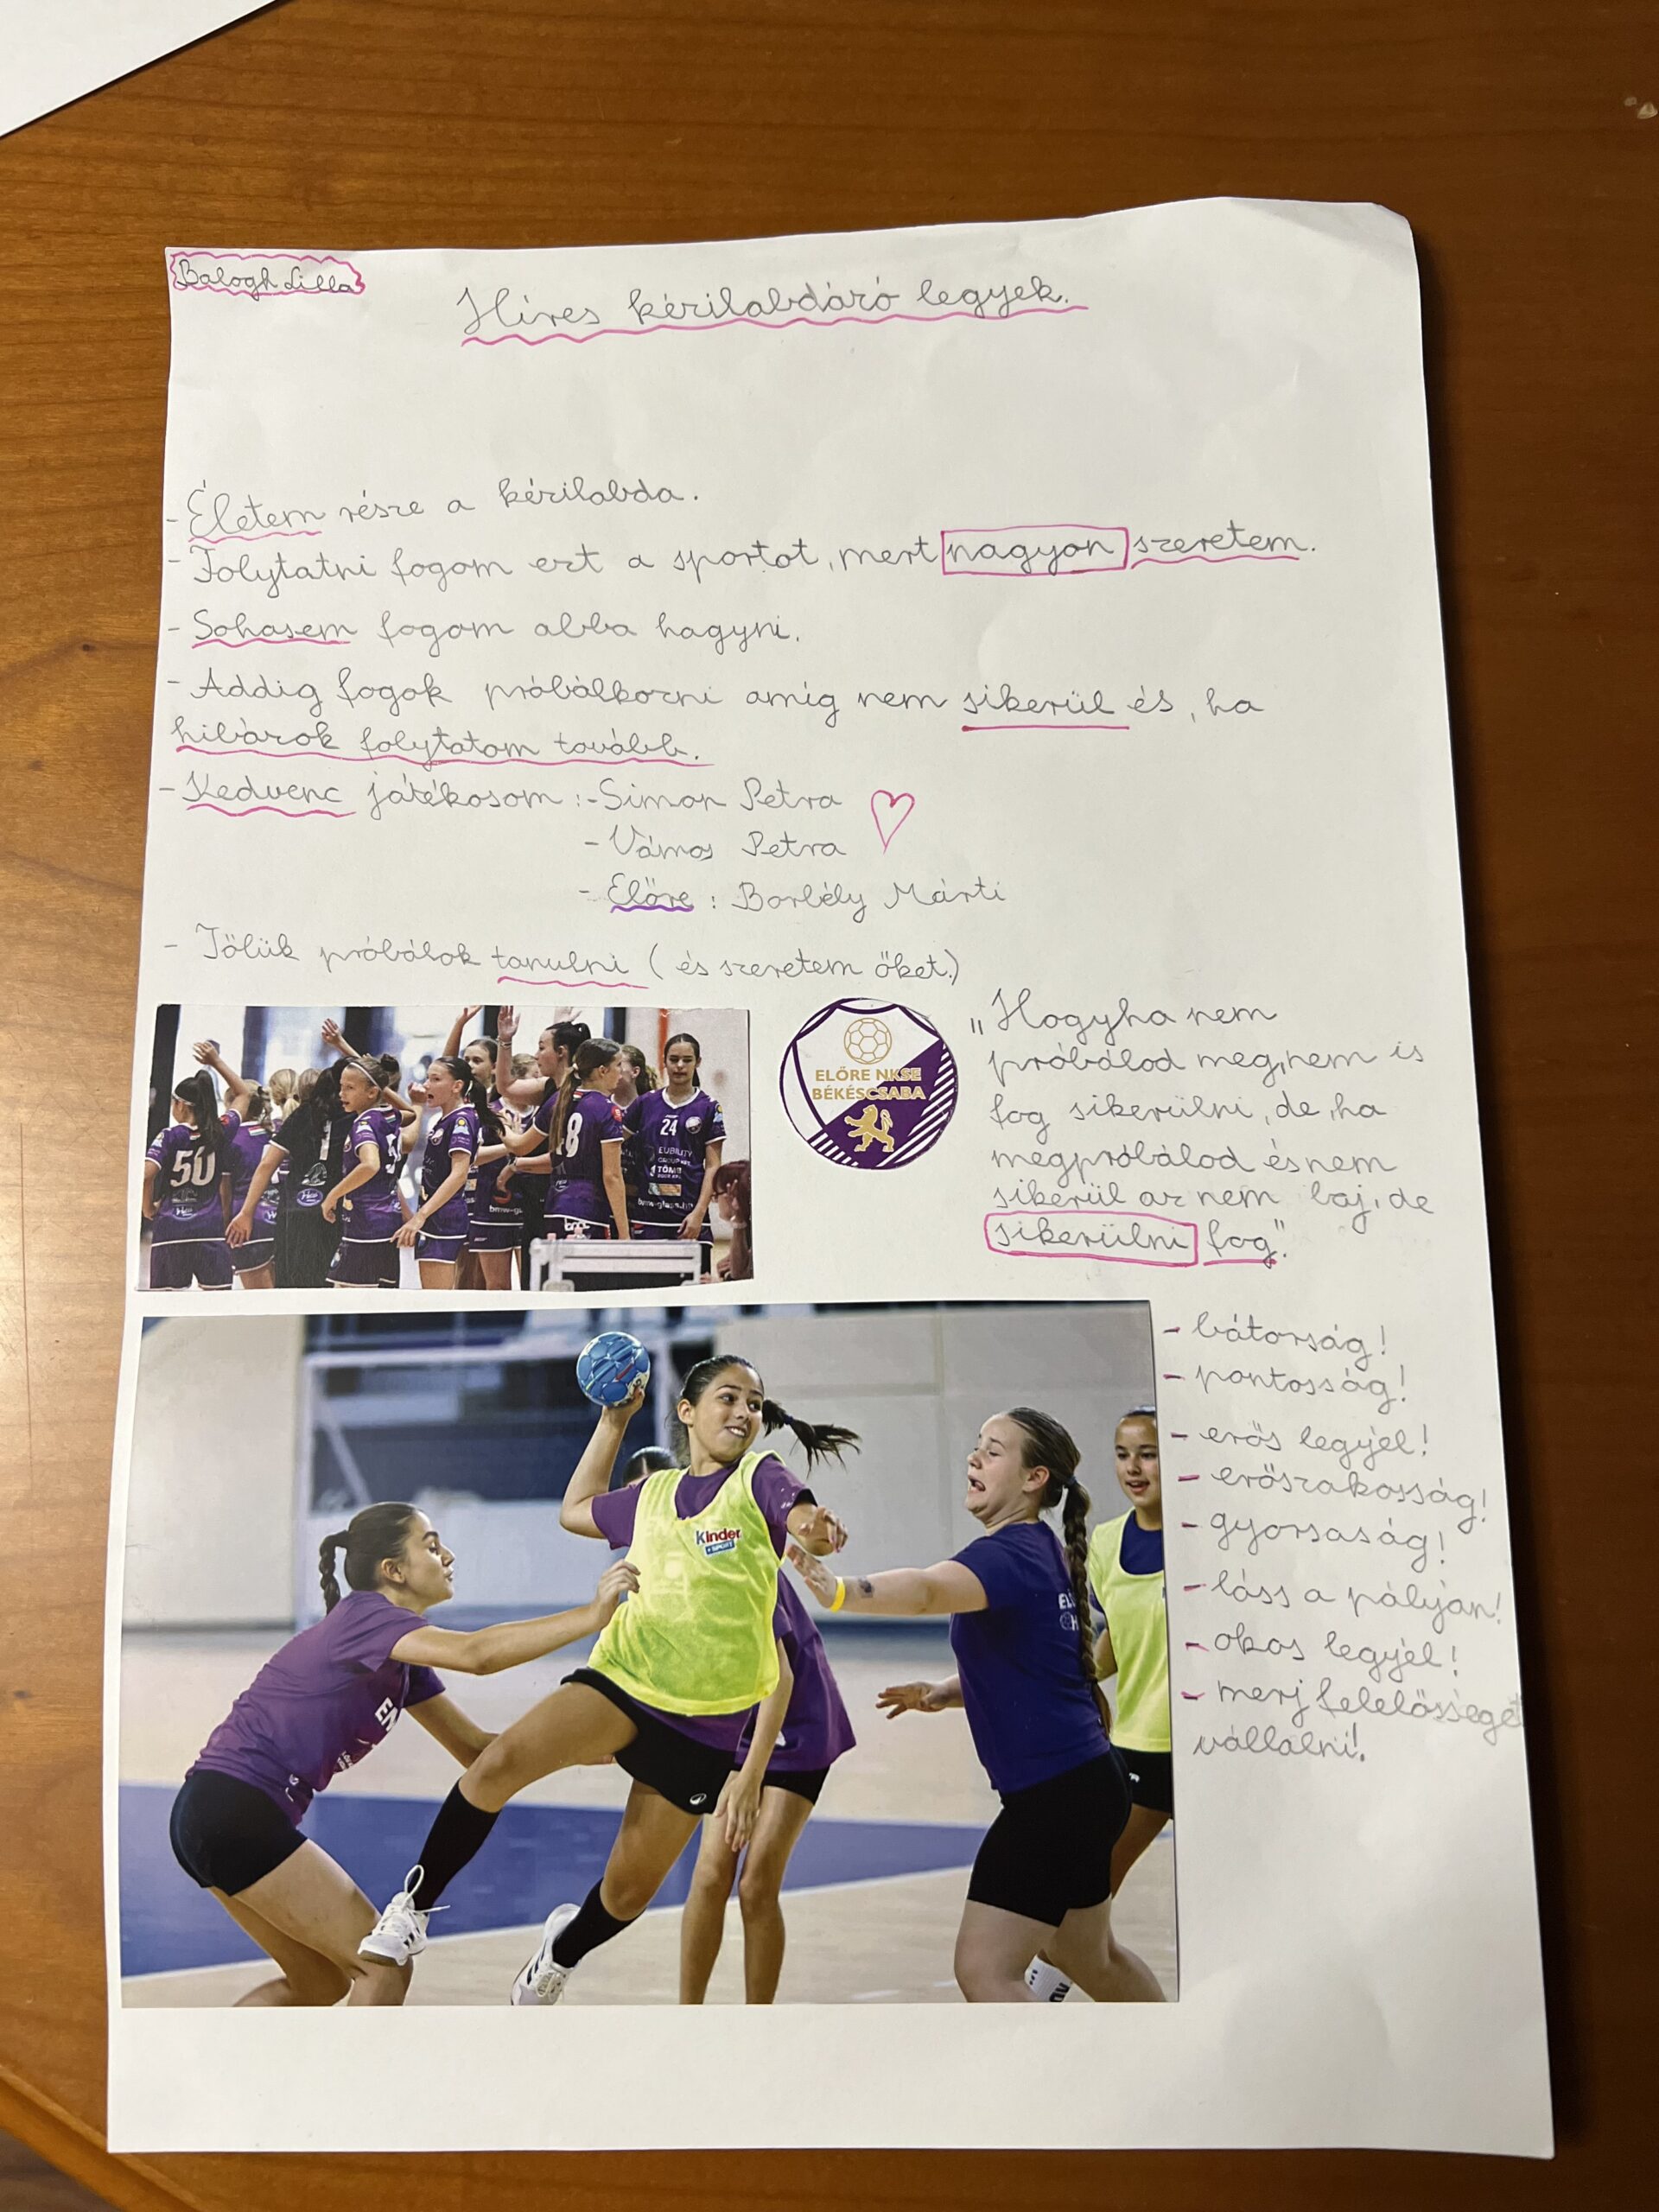 Balogh Lilla
Híres kézilabdázó legyek.
- Életem része a kézilabda.
- Folytatni fogom ezt a sportot, mert nagyon szeretem.
- Sohasem fogom abba hagyni.
- Addig fogok próbálkozni amíg nem sikerül és, ha
hibázok folytatom tovább.
- Kedvenc játékosom :- Simon Petra
- Vámos Petra
- Előre : Borbély Márti
- Tőlük próbálok tanulni ( és szeretem őket.)
50
18
24
EUBILITY
GROUP KFT.
TÖMB
2002 KFT.
ELŐRE NKSE
BÉKÉSCSABA
„Hogyha nem
próbálod meg, nem is
fog sikerülni, de, ha
megpróbálod és nem
sikerül az nem baj, de
sikerülni fog”.
Kinder
+SPORT
- bátorság!
- pontosság!
- erős legyél!
- erőszakosság!
- gyorsaság!
- láss a pályán!
- okos legyél!
- merj felelősséget
vállalni!